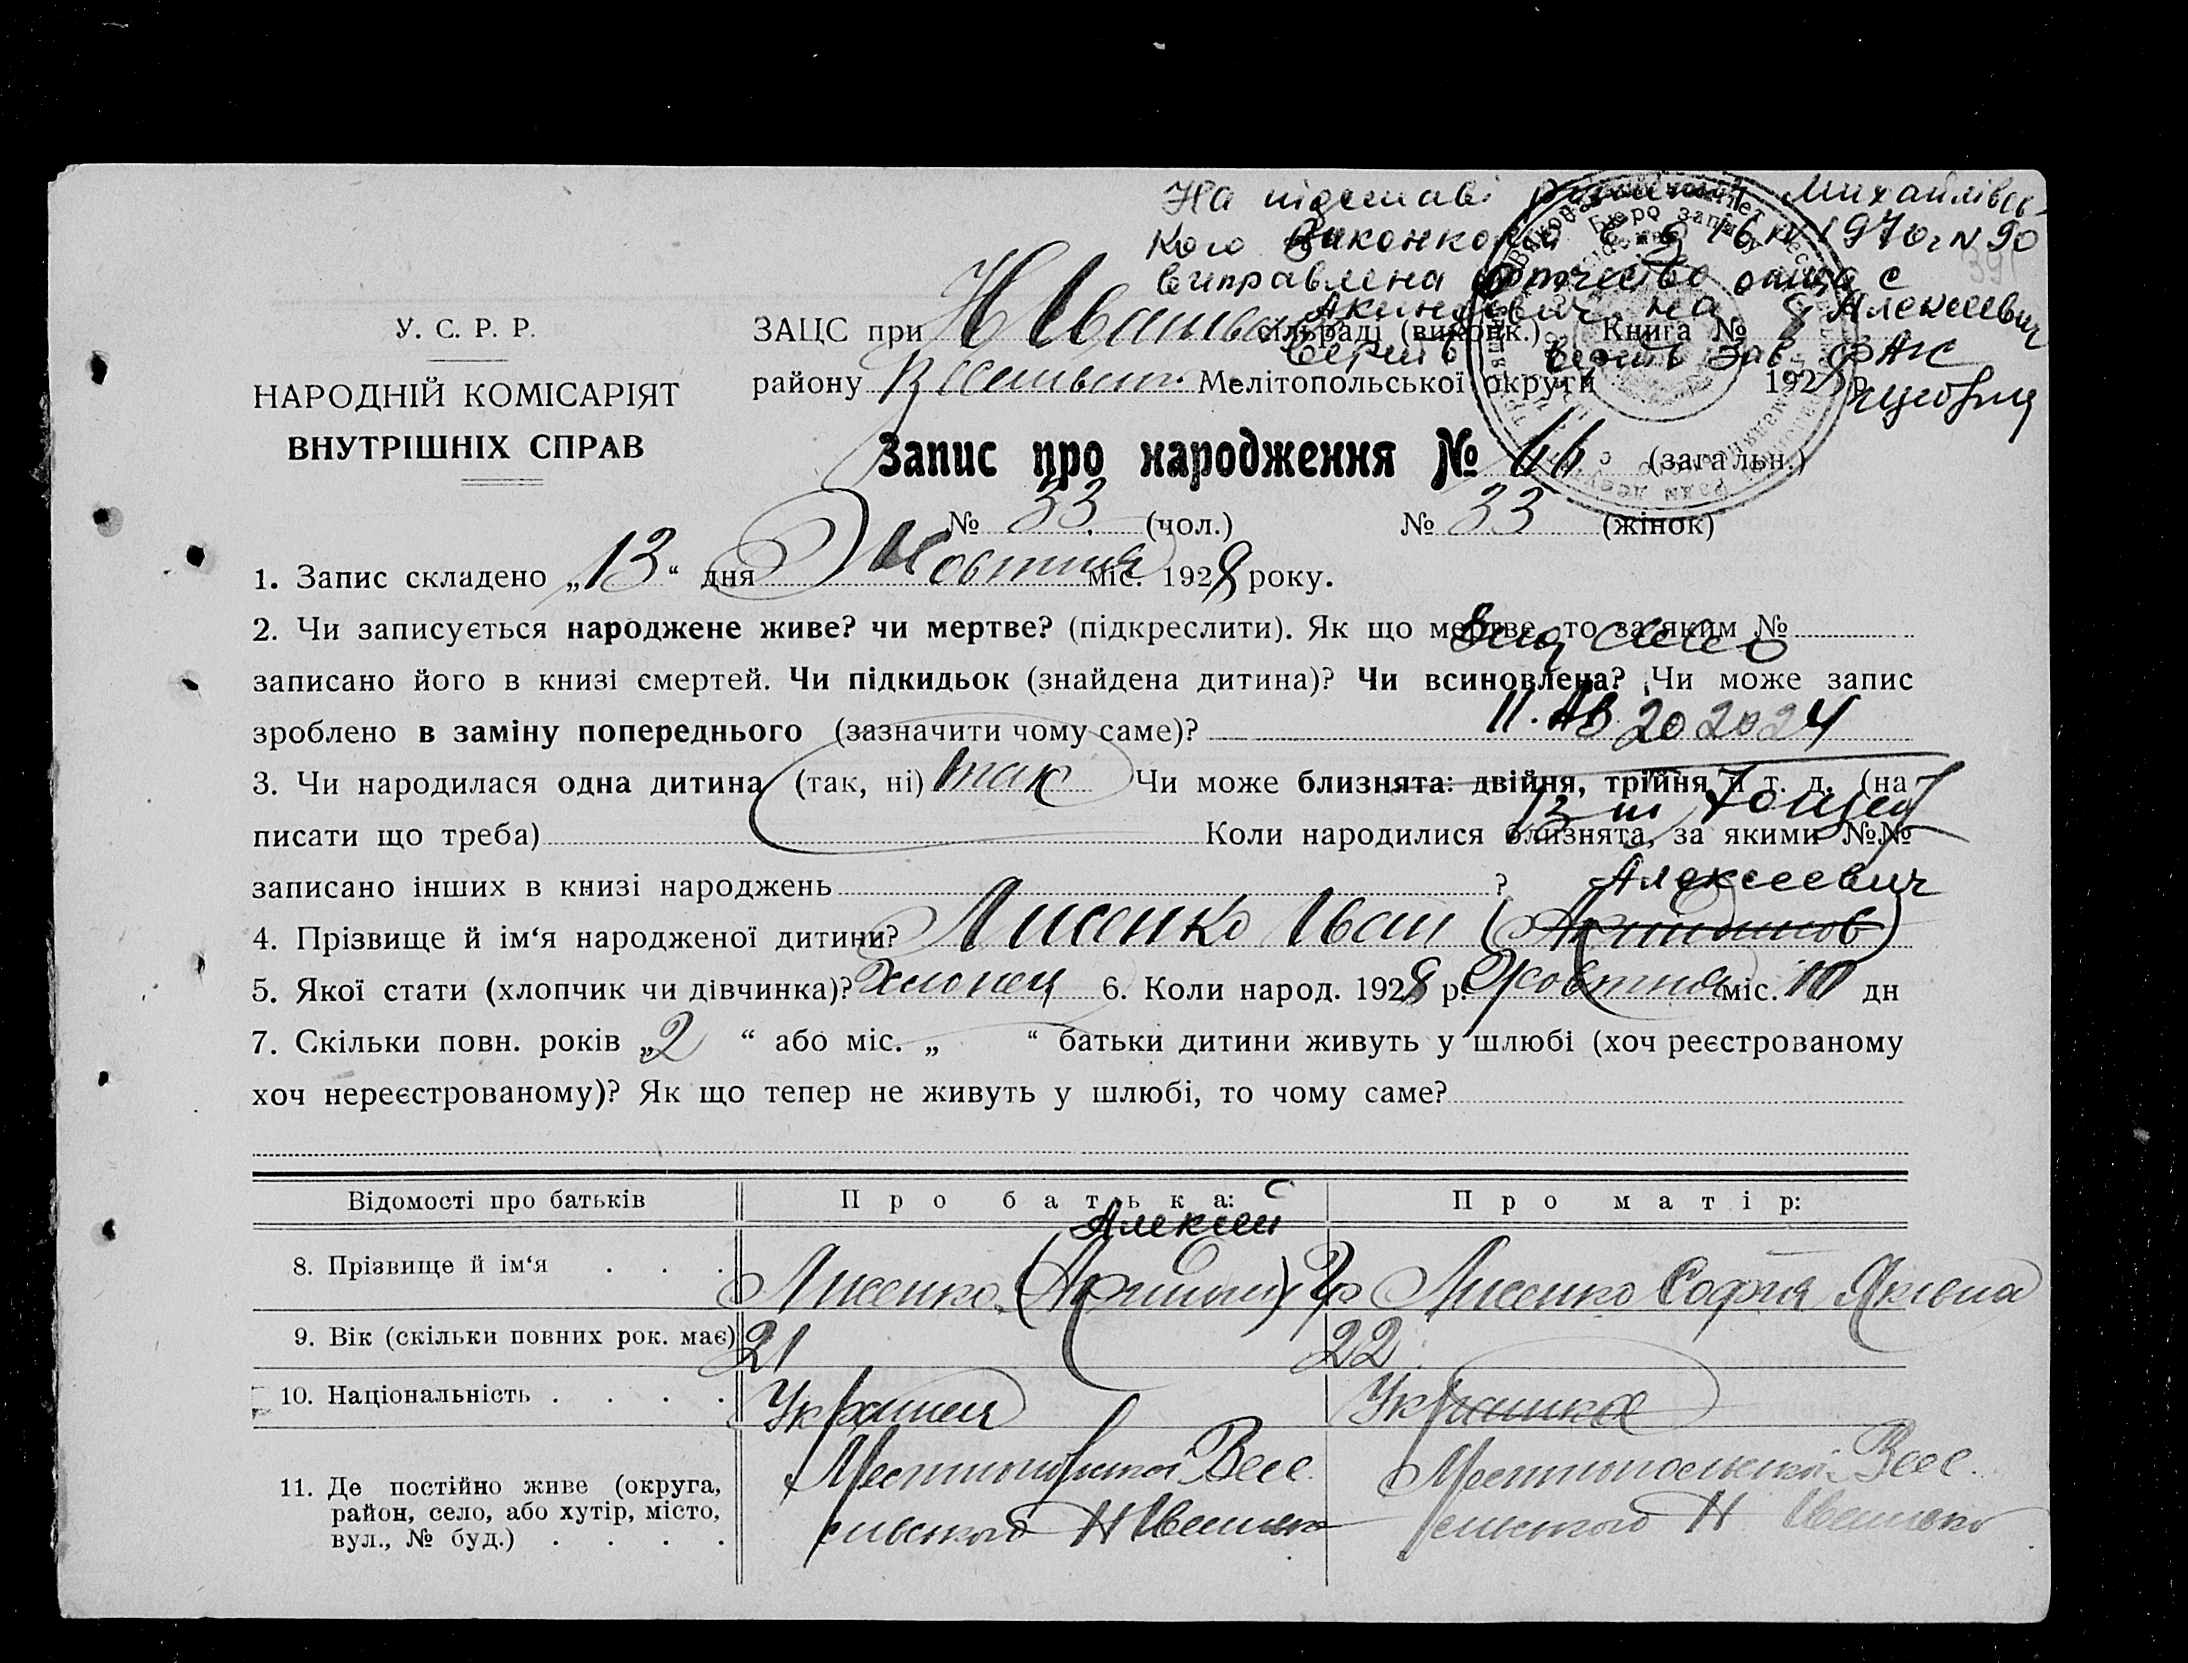 На підставі рішення Михайлівсь-
кого Виконкому 1970 г N 90
виправлена отчество отца с
Акиндович на Алексеевич
У. С. Р. Р.
НАРОДНІЙ КОМІСАРІЯТ
ВНУТРІШНІХ СПРАВ
ЗАЦС при сільраді (виконк.) Книга №
району Мелітопольської округи 1928 р.
Запис про народження № 66 (загальн.)
№ 33 (чол.) № 33 (жінок)
1. Запис складено „13“ дня Жовтня міс. 1928 року.
2. Чи записується народжене живе? чи мертве? (підкреслити). Як що мертве, то за яким №
записано його в книзі смертей. Чи підкидьок (знайдена дитина)? Чи всиновлена? Чи може запис
II. АВ 202024
зроблено в заміну попереднього (зазначити чому саме)?
3. Чи народилася одна дитина (так, ні) так Чи може близнята: двійня, трійня й т. д. (на-
писати що треба) Коли народилися близнята, за якими №№
записано інших в книзі народжень ?
Алексеевич
4. Прізвище й ім‘я народженої дитини? Лисенко Іван
5. Якої стати (хлопчик чи дівчинка)? Хлопец 6. Коли народ. 1928 р. Жовтня міс. 10 дн
7. Скільки повн. років „2 “ або міс. „ “ батьки дитини живуть у шлюбі (хоч реєстрованому
хоч нереєстрованому)? Як що тепер не живуть у шлюбі, то чому саме?
Відомості про батьків Про батька: Про матір:
Алексей
8. Прізвище й ім‘я . . . Лисенко Лисенко Софія Яківна
9. Вік (скільки повних рок. має) 21 22
10. Національність . . . . Українец Українка
11. Де постійно живе (округа,
район, село, або хутір, місто,
вул., № буд.) . . . .